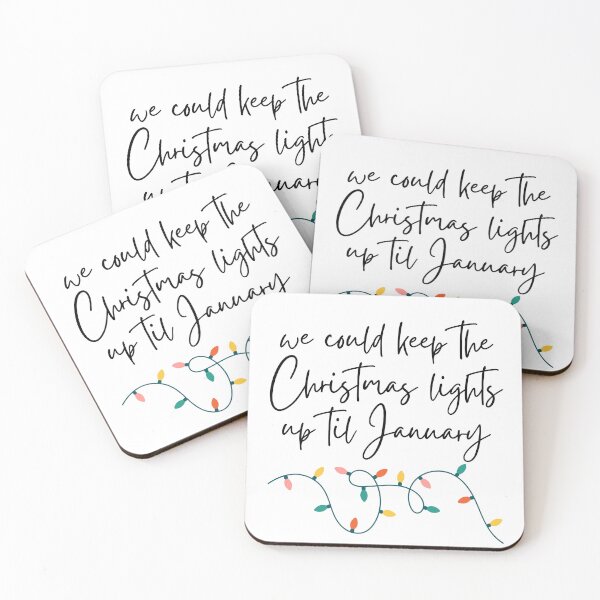 we could keep the
Christmas lights
we could keep the
Christmas lights
up til January
we could keep the
Christmas lights
up til January
we could keep the
Christmas lights
up til January